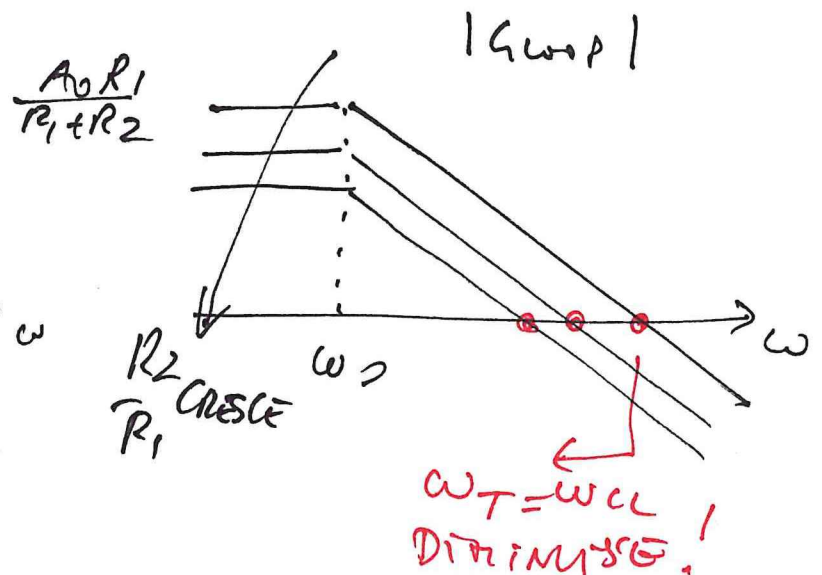 |Gloop|
A0 R1
R1 + R2
ω
ω
R2
R1
CRESCE
ω0
ωT = ωCL
DIMINUISCE!